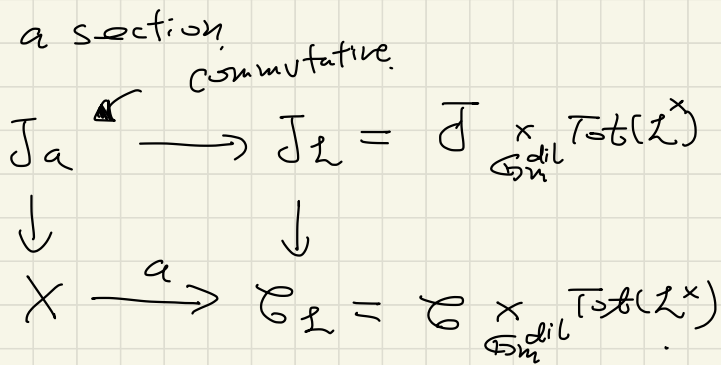 a section
commutative.
J_a ⟶ J_ℒ = J ×_{𝔾_m^{dil}} Tot(ℒ^×)
↓ ↓
X ⟶^{a} ℭ_ℒ = ℭ ×_{𝔾_m^{dil}} Tot(ℒ^×).